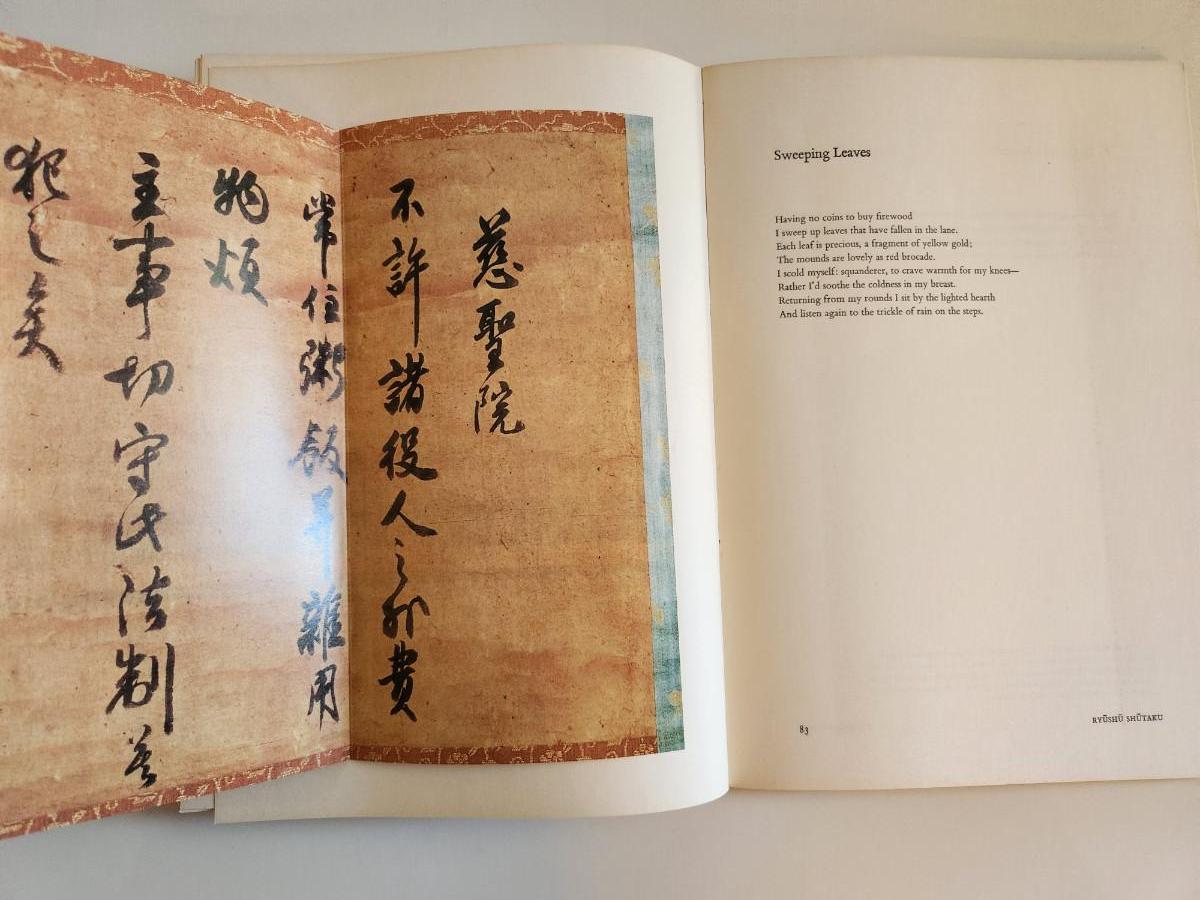 慈聖院
不許諸役人之費
常住粥飯雜用
物煩
主事切守此法制
犯之矣
Sweeping Leaves
Having no coins to buy firewood
I sweep up leaves that have fallen in the lane.
Each leaf is precious, a fragment of yellow gold;
The mounds are lovely as red brocade.
I scold myself: squanderer, to crave warmth for my knees—
Rather I'd soothe the coldness in my breast.
Returning from my rounds I sit by the lighted hearth
And listen again to the trickle of rain on the steps.
83
RYŪSHŪ SHŪTAKU